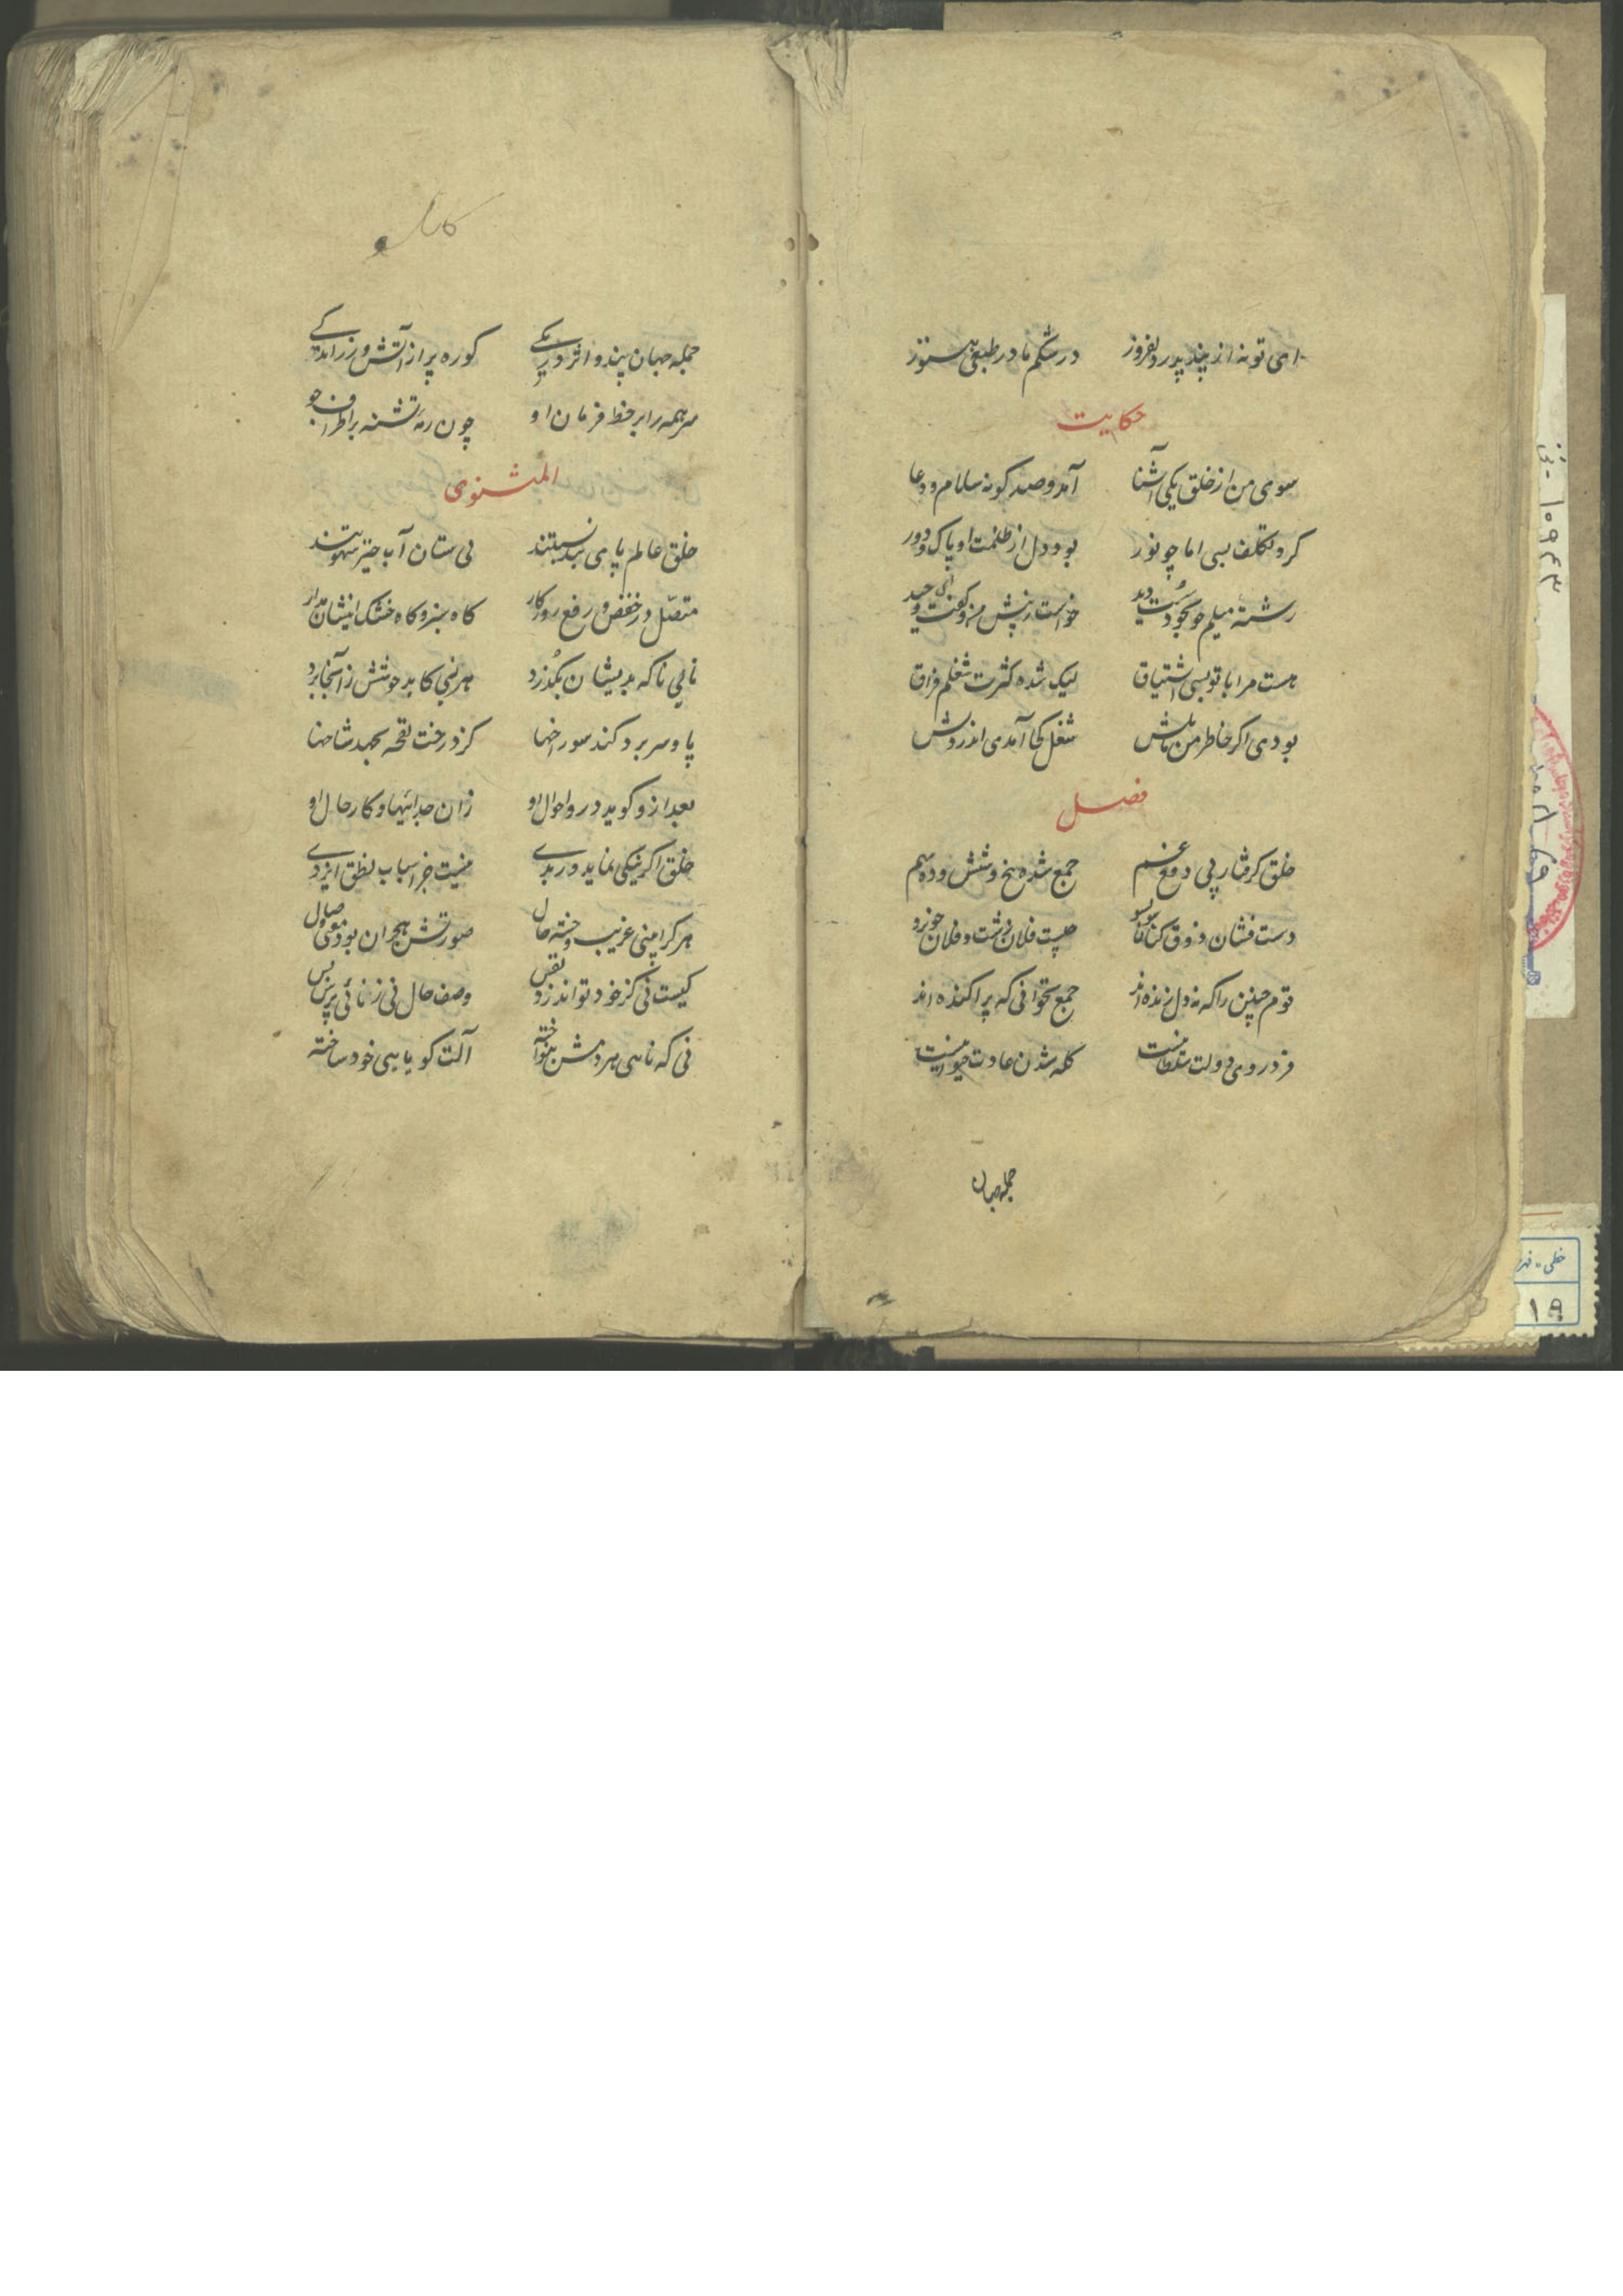 ای تو نه از پند پدر دلفروز در شکم مادر طبعی هنوز
حکایت
سوی من از خلق یکی آشنا آمد و صد گونه سلام و دعا
کرد تکلف بسی اما چو نور بود دل از ظلمت او پاک و دور
رشتهٔ میلم چو بخود سُست دید خواست ز پیش من و گفت ای وحید
هست مرا با تو بسی اشتیاق لیک شده کثرت شغلم فراق
بودی اگر خاطر من مایلش شغل کجا آمدی اندر دلش
فصل
خلق گرفتار پی دفع غم جمع شده پنج و شش و ده بهم
دست فشان ذوق کنان سو بسو چیست فلان زشت و فلان خوبرو
قوم چنین را که نه دل زنده اند جمع نخوانی که پراکنده اند
فرد روی دولت سلطانیست گله شدن عادت حیوانیست
جمله جهان
جمله جهان پند و اثر در یکی کوره پر از آتش و زر اندکی
سر همه را بر خط فرمان او چون رمهٔ تشنه بر اطراف جو
المثنوی
خلق عالم پای بند نیستند
متصل در خفض و رفع روزگار کاه سبز و کاه خشک ایشان مدار
نایی ناگه بدیشان بگذرد هر نیی کاید خوشش ز آنجا برد
پا و سر برد کند سوراخها کز درخت نفحه بجهد شاخها
بعد ازو گوید درو احوال او زان جداییها و کار حال او
خلق اگر نیکی نماید ور بدی نیست جز اسباب نطق ایزدی
هر کرا بینی غریب و خسته حال صورتش هجران بود معنی وصال
کیست نی کز خود تواند زد نفس وصف حال نی ز نائی پرس بس
نی که نایی هر دمش بنواخته آلت گویایی خود ساخته